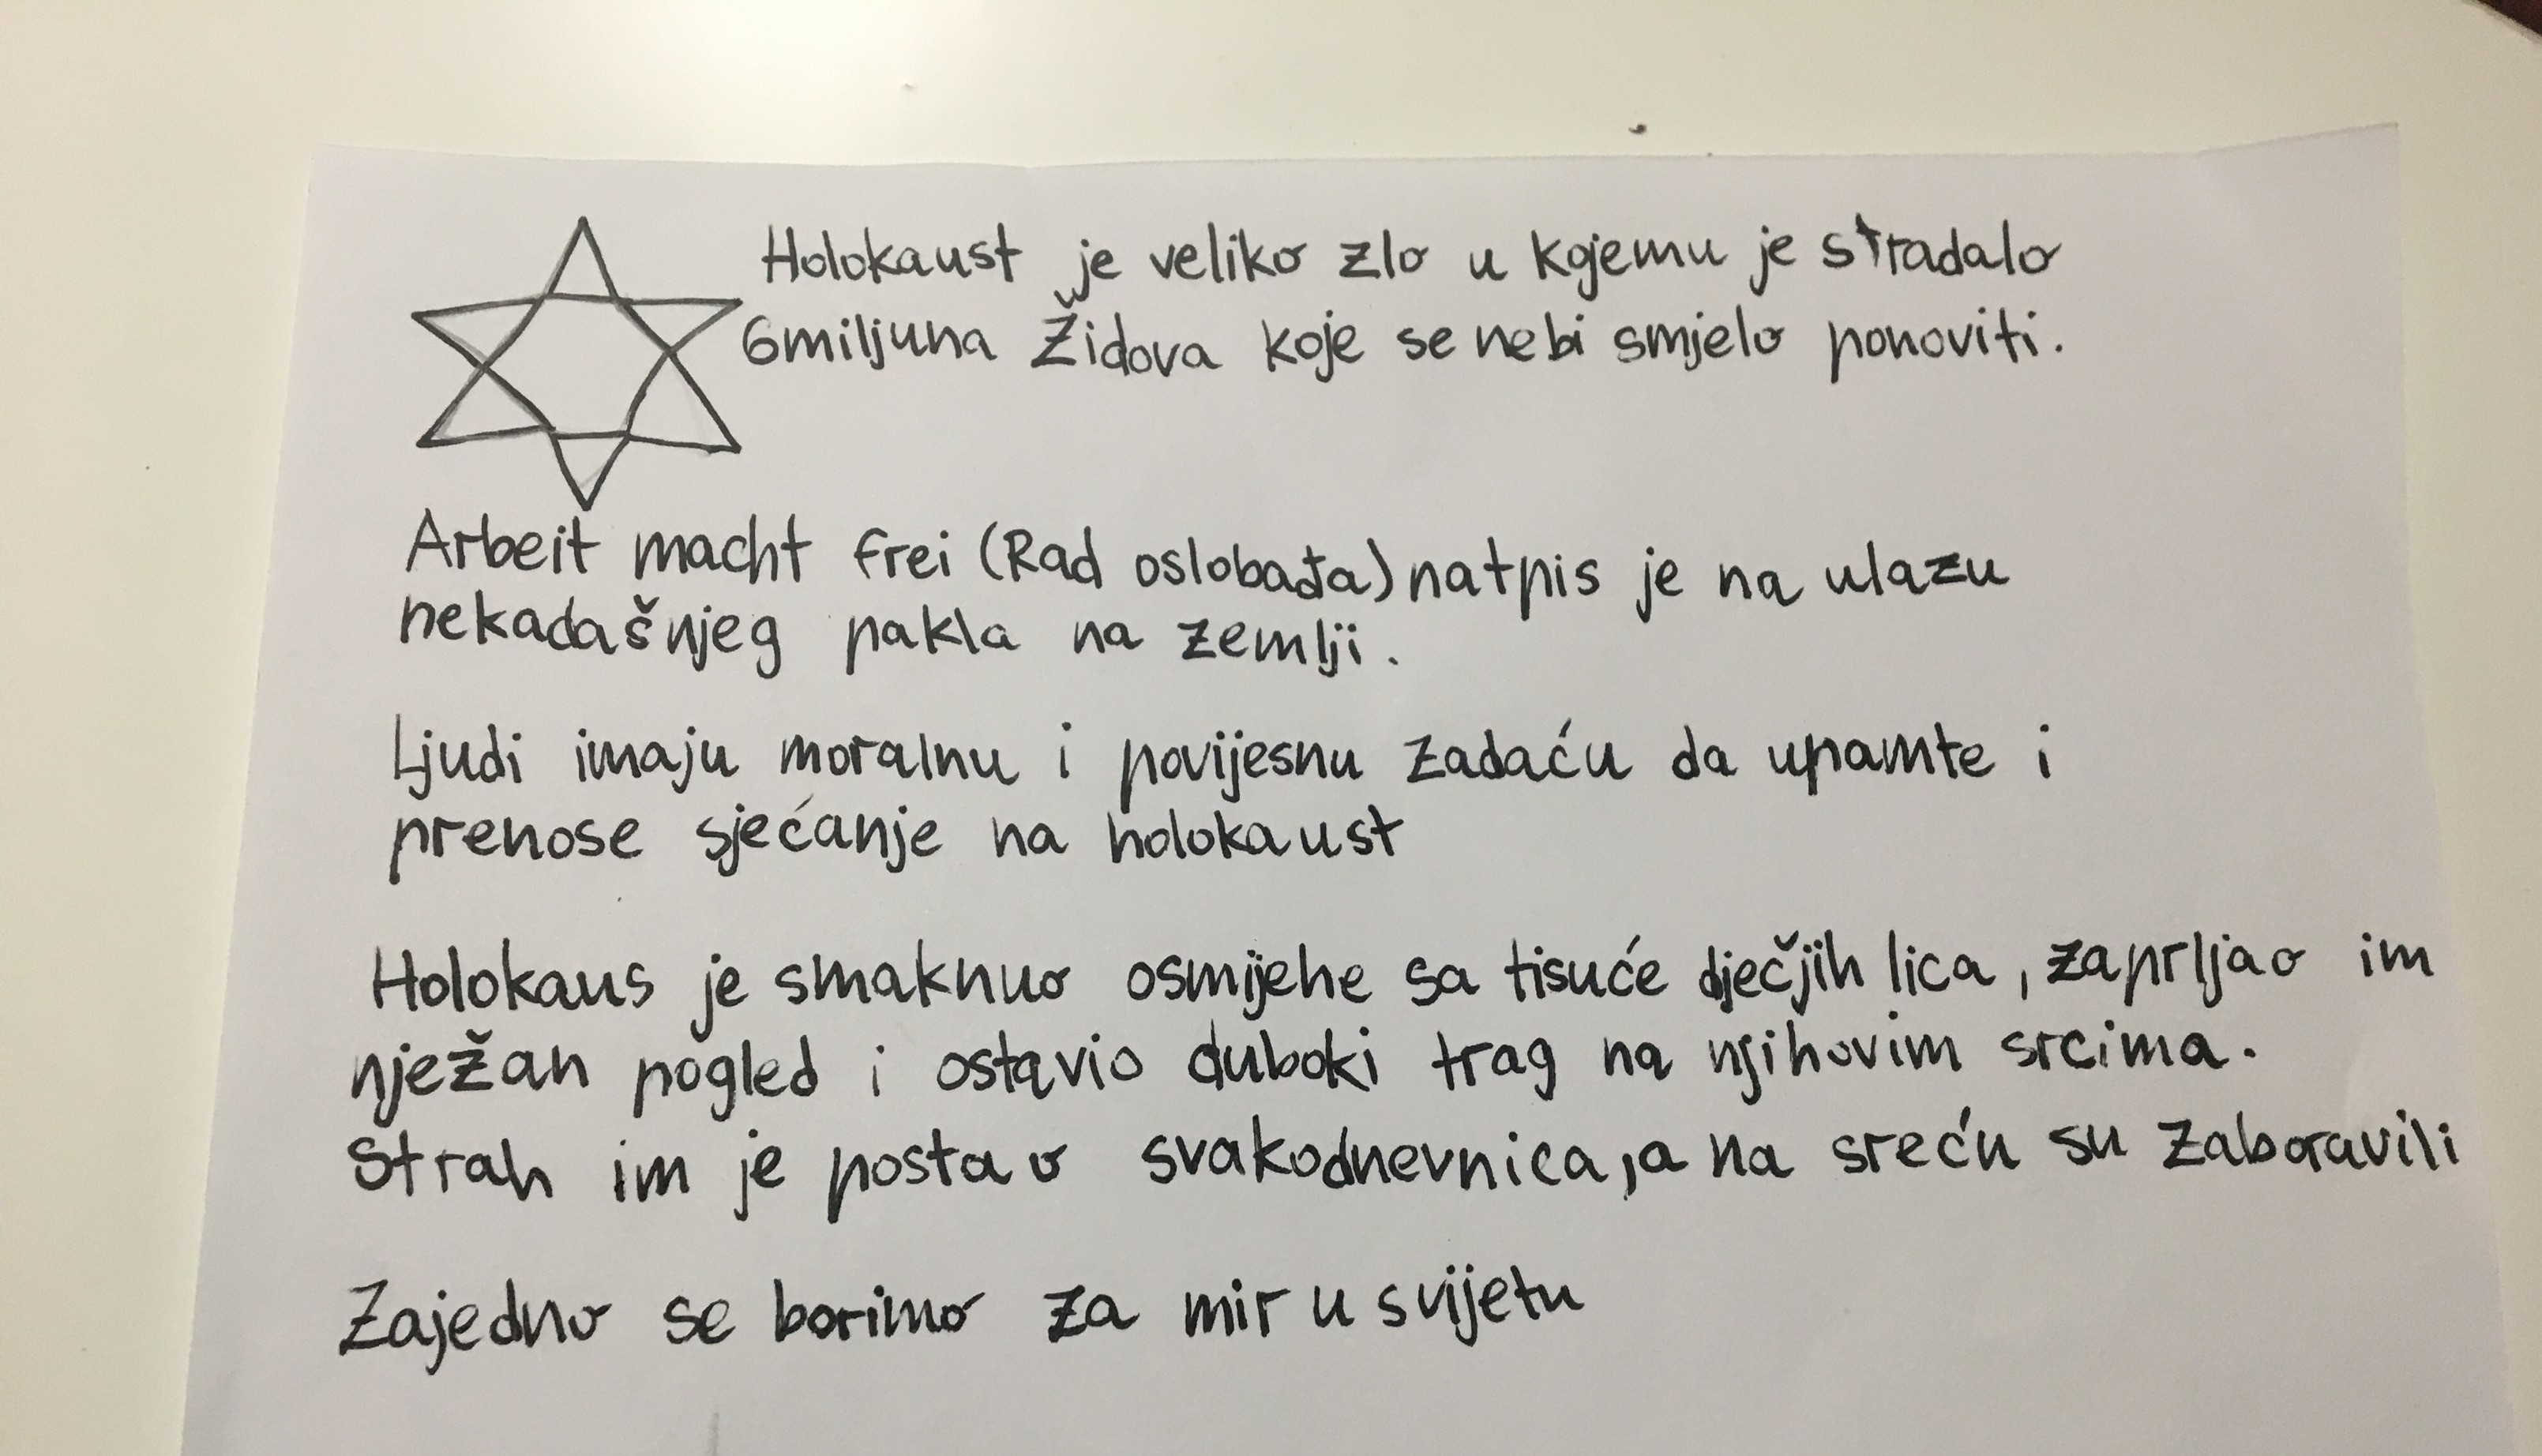 Holokaust je veliko zlo u kojemu je stradalo
6miljuna Židova koje se nebi smjelo ponoviti.
Arbeit macht frei (Rad oslobađa) natpis je na ulazu
nekadašnjeg pakla na zemlji.
Ljudi imaju moralnu i povijesnu zadaću da upamte i
prenose sjećanje na holokaust
Holokaus je smaknuo osmijehe sa tisuće dječjih lica, zaprljao im
nježan pogled i ostavio duboki trag na njihovim srcima.
Strah im je postao svakodnevnica, a na sreću su zaboravili
Zajedno se borimo za mir u svijetu